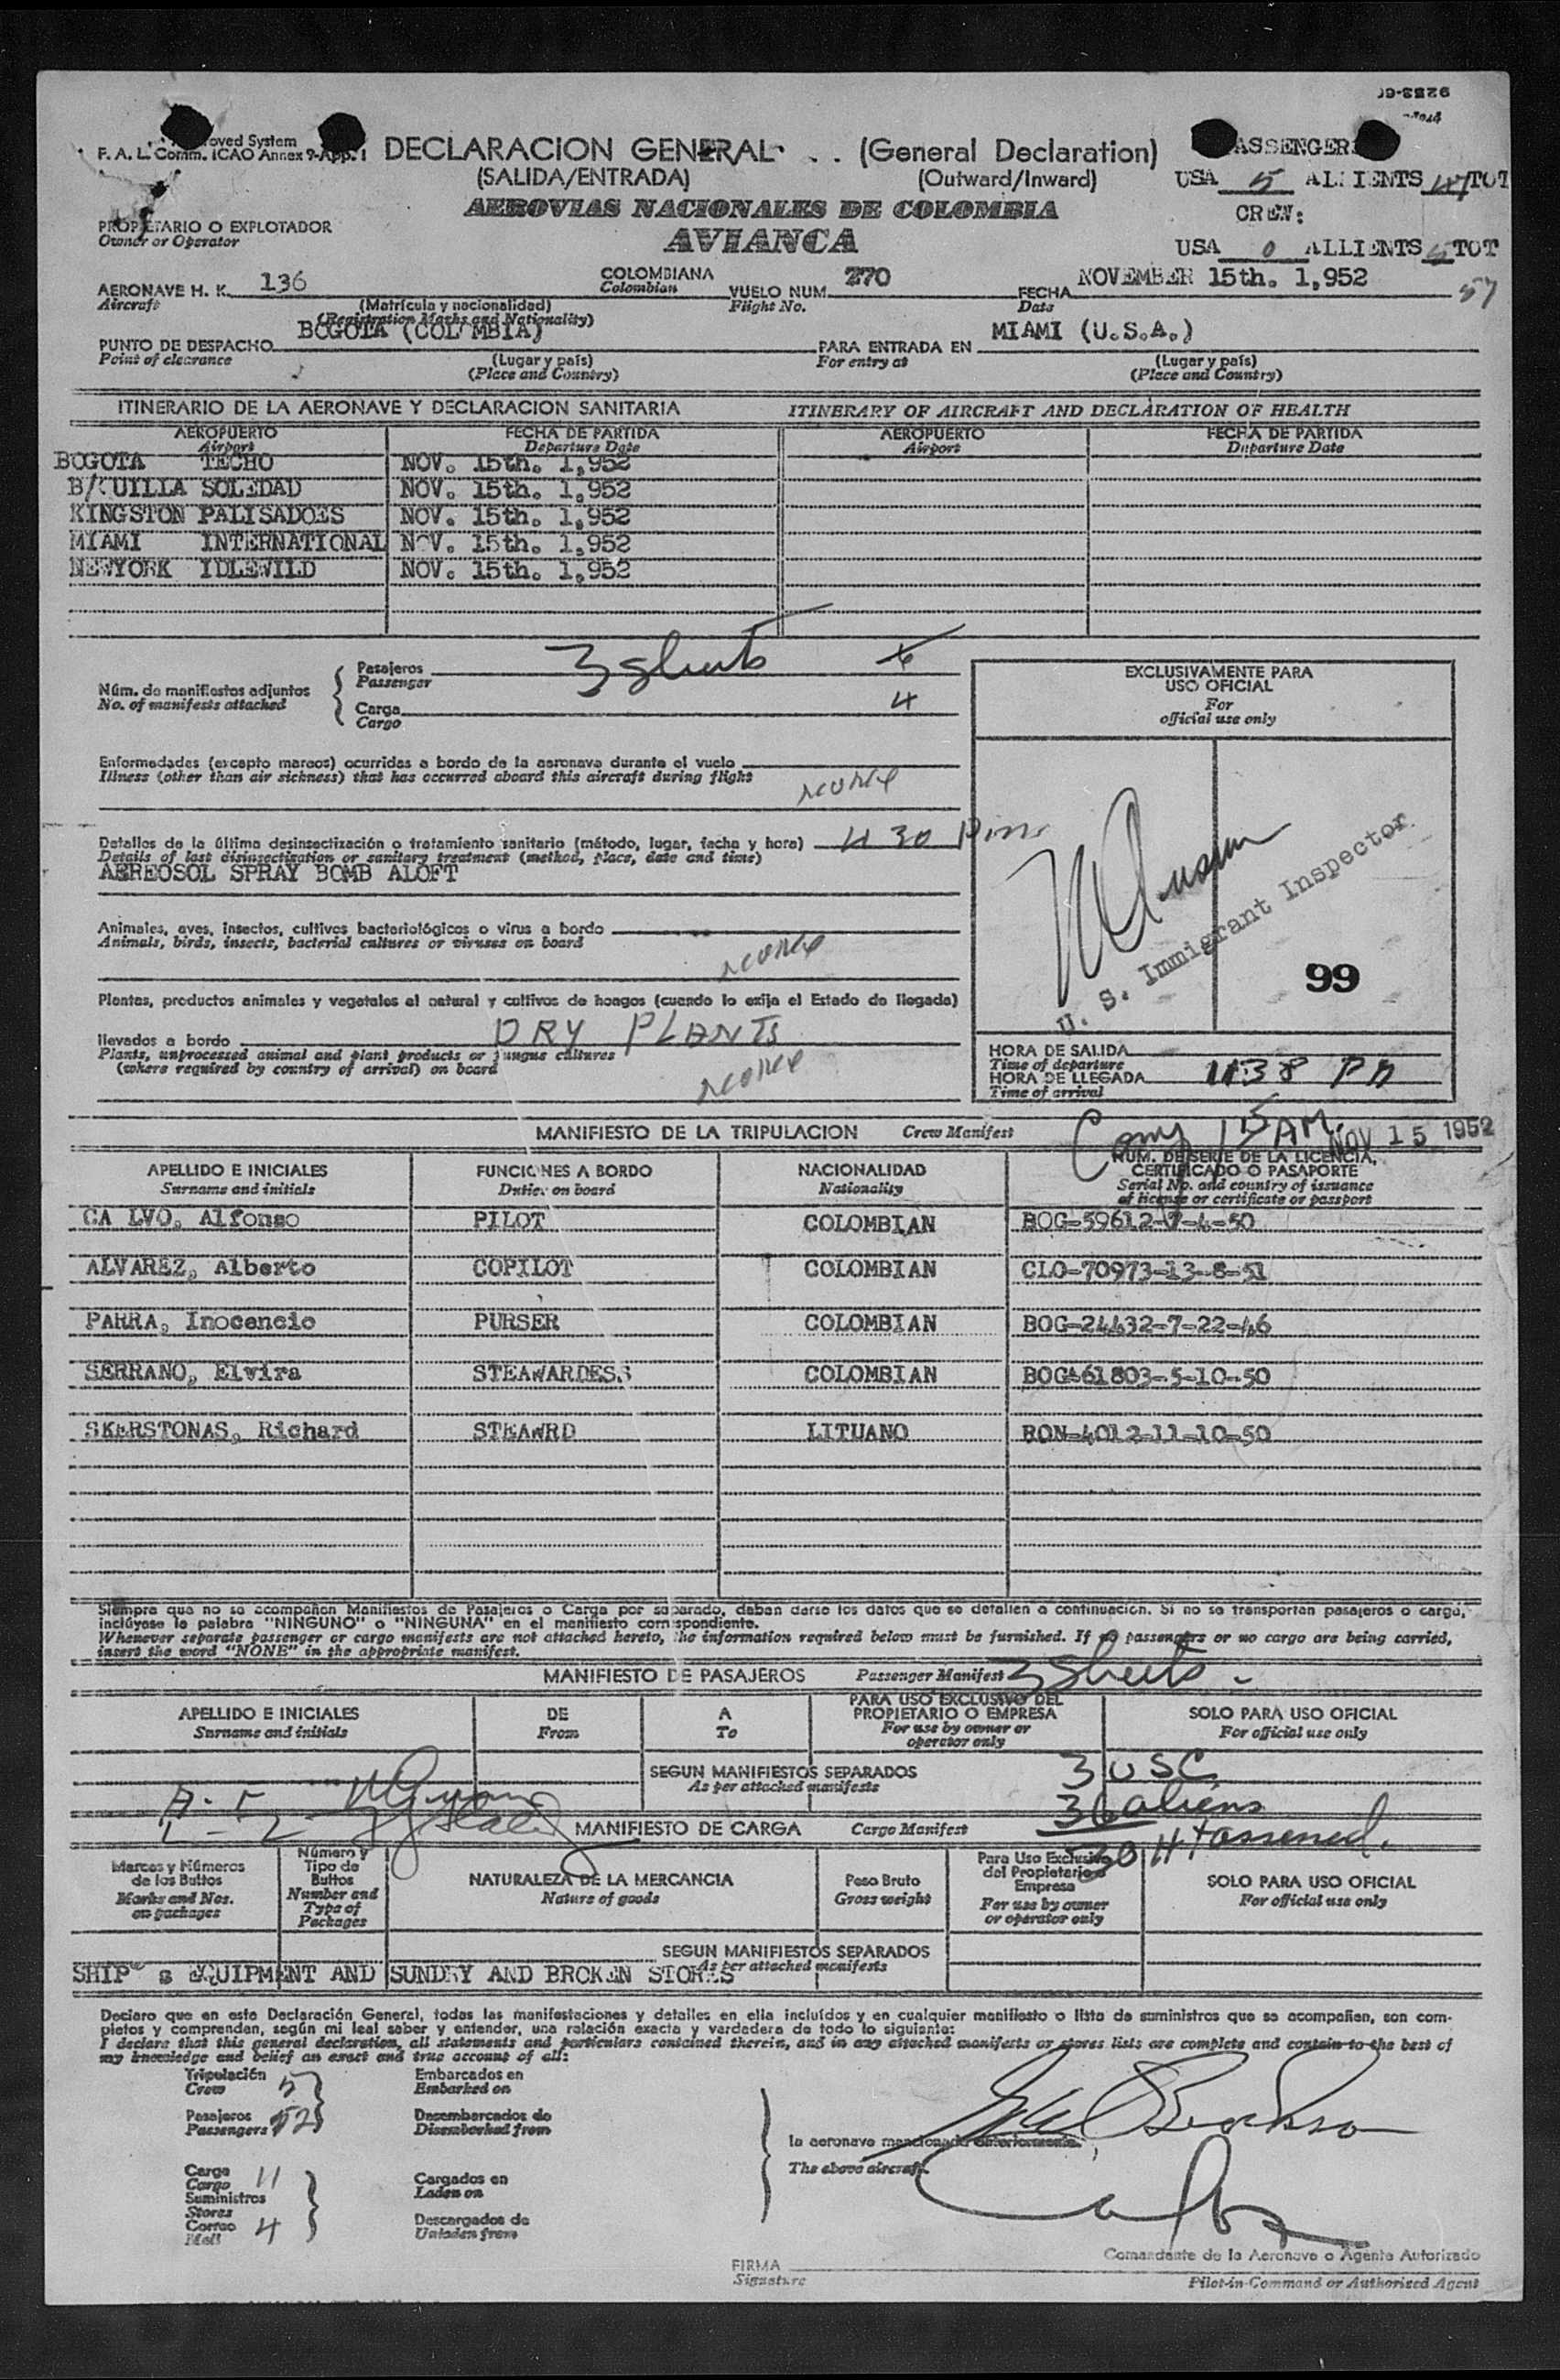 F. A. L. Comm. ICAO Annex 9-App. 1
DECLARACION GENERAL (General Declaration)
(SALIDA/ENTRADA) (Outward/Inward)
USA 5 TOT
AEROVIAS NACIONALES DE COLOMBIA
CREW:
PROPIETARIO O EXPLOTADOR
Owner or Operator
AVIANCA
USA 0 ALLIENTS 5 TOT
57
AERONAVE H. K. 136 COLOMBIANA VUELO NUM. 270 FECHA NOVEMBER 15th. 1,952
Aircraft (Matrícula y nacionalidad) Colombian Flight No. Date
(Registration Marks and Nationality)
PUNTO DE DESPACHO BOGOTA (COL MBIA) PARA ENTRADA EN MIAMI (U.S.A.)
Point of clearance (Lugar y país) For entry at (Lugar y país)
(Place and Country) (Place and Country)
ITINERARIO DE LA AERONAVE Y DECLARACION SANITARIA ITINERARY OF AIRCRAFT AND DECLARATION OF HEALTH
AEROPUERTO FECHA DE PARTIDA AEROPUERTO FECHA DE PARTIDA
Airport Departure Date Airport Departure Date
BOGOTA TECHO NOV. 15th. 1,952
SOLEDAD NOV. 15th. 1,952
KINGSTON PALISADOES NOV. 15th. 1,952
MIAMI INTERNATIONAL NOV. 15th. 1,952
NEWYORK IDLEWILD NOV. 15th. 1,952
Núm. de manifiestos adjuntos
No. of manifests attached
Pasajeros 3 sheets
Passenger
Carga 4
Cargo
EXCLUSIVAMENTE PARA
USO OFICIAL
For
official use only
Enfermedades (excepto mareos) ocurridas a bordo de la aeronave durante el vuelo
Illness (other than air sickness) that has occurred aboard this aircraft during flight
none
Detalles de la última desinsectización o tratamiento sanitario (método, lugar, fecha y hora) 4 30 Pm
Details of last disinsectization or sanitary treatment (method, place, date and time)
AEREOSOL SPRAY BOMB ALOFT
Animales, aves, insectos, cultivos bacteriológicos o virus a bordo
Animals, birds, insects, bacterial cultures or viruses on board
none
U. S. Immigrant Inspector
99
Plantas, productos animales y vegetales al natural y cultivos de hongos (cuando lo exija el Estado de llegada)
llevados a bordo DRY PLANTS
Plants, unprocessed animal and plant products or fungus cultures
(where required by country of arrival) on board
none
HORA DE SALIDA
Time of departure
HORA DE LLEGADA 438 PM
Time of arrival
NOV 15 1952
MANIFIESTO DE LA TRIPULACION Crew Manifest
APELLIDO E INICIALES FUNCIONES A BORDO NACIONALIDAD NUM. DE SERIE DE LA LICENCIA,
CERTIFICADO O PASAPORTE
Surname and initials Duties on board Nationality Serial No. and country of issuance
of license or certificate or passport
CA LVO, Alfonso PILOT COLOMBIAN BOG-59612-7-4-50
ALVAREZ, Alberto COPILOT COLOMBIAN CLO-70973-13-8-51
PARRA, Inocencio PURSER COLOMBIAN BOG-24432-7-22-46
SERRANO, Elvira STEAWARDESS COLOMBIAN BOG-61803-5-10-50
SKERSTONAS, Richard STEAWRD LITUANO BON-4012-11-10-50
Siempre que no se acompañen Manifiestos de Pasajeros o Carga por separado, deban darse los datos que se detallen a continuación. Si no se transportan pasajeros o carga,
inclúyase la palabra "NINGUNO" o "NINGUNA" en el manifiesto correspondiente.
Whenever separate passenger or cargo manifests are not attached hereto, the information required below must be furnished. If no passengers or no cargo are being carried,
insert the word "NONE" in the appropriate manifest.
MANIFIESTO DE PASAJEROS Passenger Manifest 3 Sheets
APELLIDO E INICIALES DE A PARA USO EXCLUSIVO DEL
PROPIETARIO O EMPRESA SOLO PARA USO OFICIAL
Surname and initials From To For use by owner or
operator only For official use only
SEGUN MANIFIESTOS SEPARADOS
As per attached manifests
3 USC
36 aliens
30 Ht assessed.
MANIFIESTO DE CARGA Cargo Manifest
Marcas y Números
de los Bultos
Marks and Nos.
on packages
Número y
Tipo de
Bultos
Number and
Type of
Packages
NATURALEZA DE LA MERCANCIA
Nature of goods
Peso Bruto
Gross weight
Para Uso Exclusivo
del Propietario o
Empresa
For use by owner
or operator only
SOLO PARA USO OFICIAL
For official use only
SEGUN MANIFIESTOS SEPARADOS
As per attached manifests
SHIP' s EQUIPMENT AND SUNDRY AND BROKEN STORES
Declaro que en esta Declaración General, todas las manifestaciones y detalles en ella incluídos y en cualquier manifiesto o lista de suministros que se acompañen, son com-
pletos y comprenden, según mi leal saber y entender, una relación exacta y verdadera de todo lo siguiente:
I declare that this general declaration, all statements and particulars contained therein, and in any attached manifests or stores lists are complete and contain to the best of
my knowledge and belief an exact and true account of all:
Tripulación 5 Embarcados en
Crew Embarked on
Pasajeros 52 Desembarcados de
Passengers Disembarked from
la aeronave mencionada anteriormente.
The above aircraft.
Carga 11 Cargados en
Cargo Laden on
Suministros
Stores
Correo 4 Descargados de
Mail Unladen from
FIRMA
Signature
Comandante de la Aeronave o Agente Autorizado
Pilot-in-Command or Authorised Agent